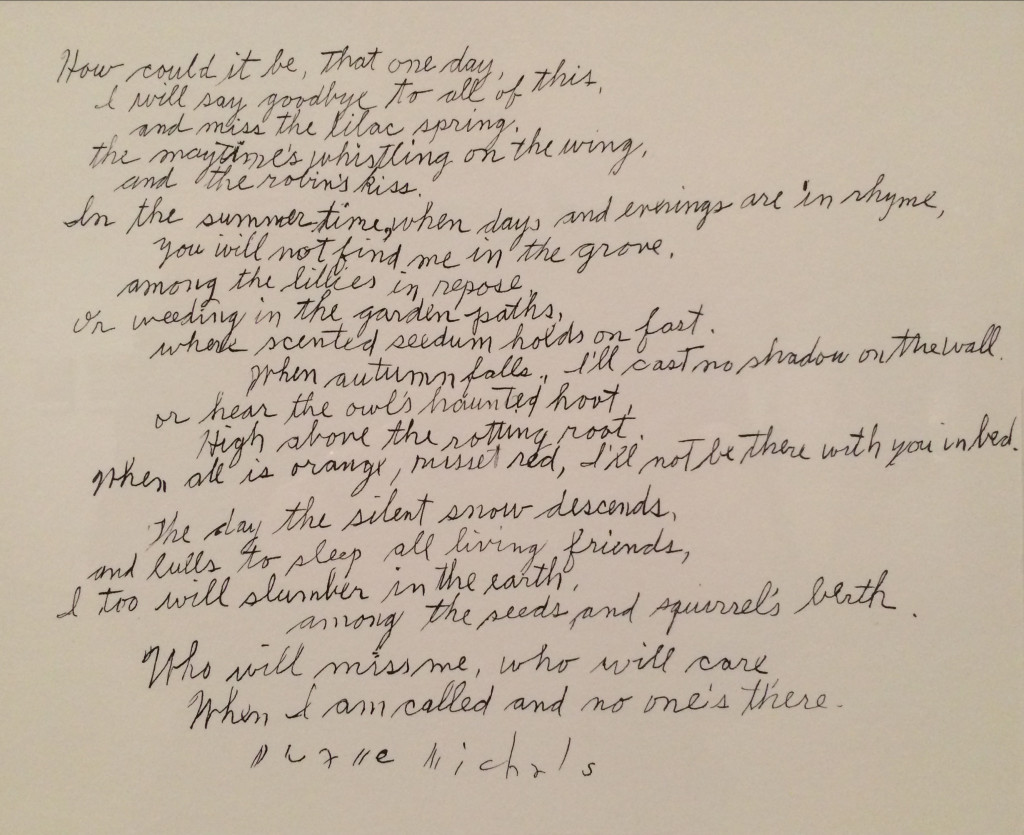 How could it be, that one day,
I will say goodbye to all of this,
and miss the lilac spring,
the maytime's whistling on the wing,
and the robin's kiss.
In the summer time, when days and evenings are in rhyme,
you will not find me in the grove,
among the lillies in repose,
Or weeding in the garden paths,
where scented seedum holds on fast.
When autumn falls, I'll cast no shadow on the wall.
or hear the owl's haunted hoot,
High above the rotting root.
When all is orange, russet red, I'll not be there with you in bed.
The day the silent snow descends,
and lulls to sleep all living friends,
I too will slumber in the earth,
among the seeds, and squirrel's berth.
Who will miss me, who will care
When I am called and no one's there.
Duane Michals